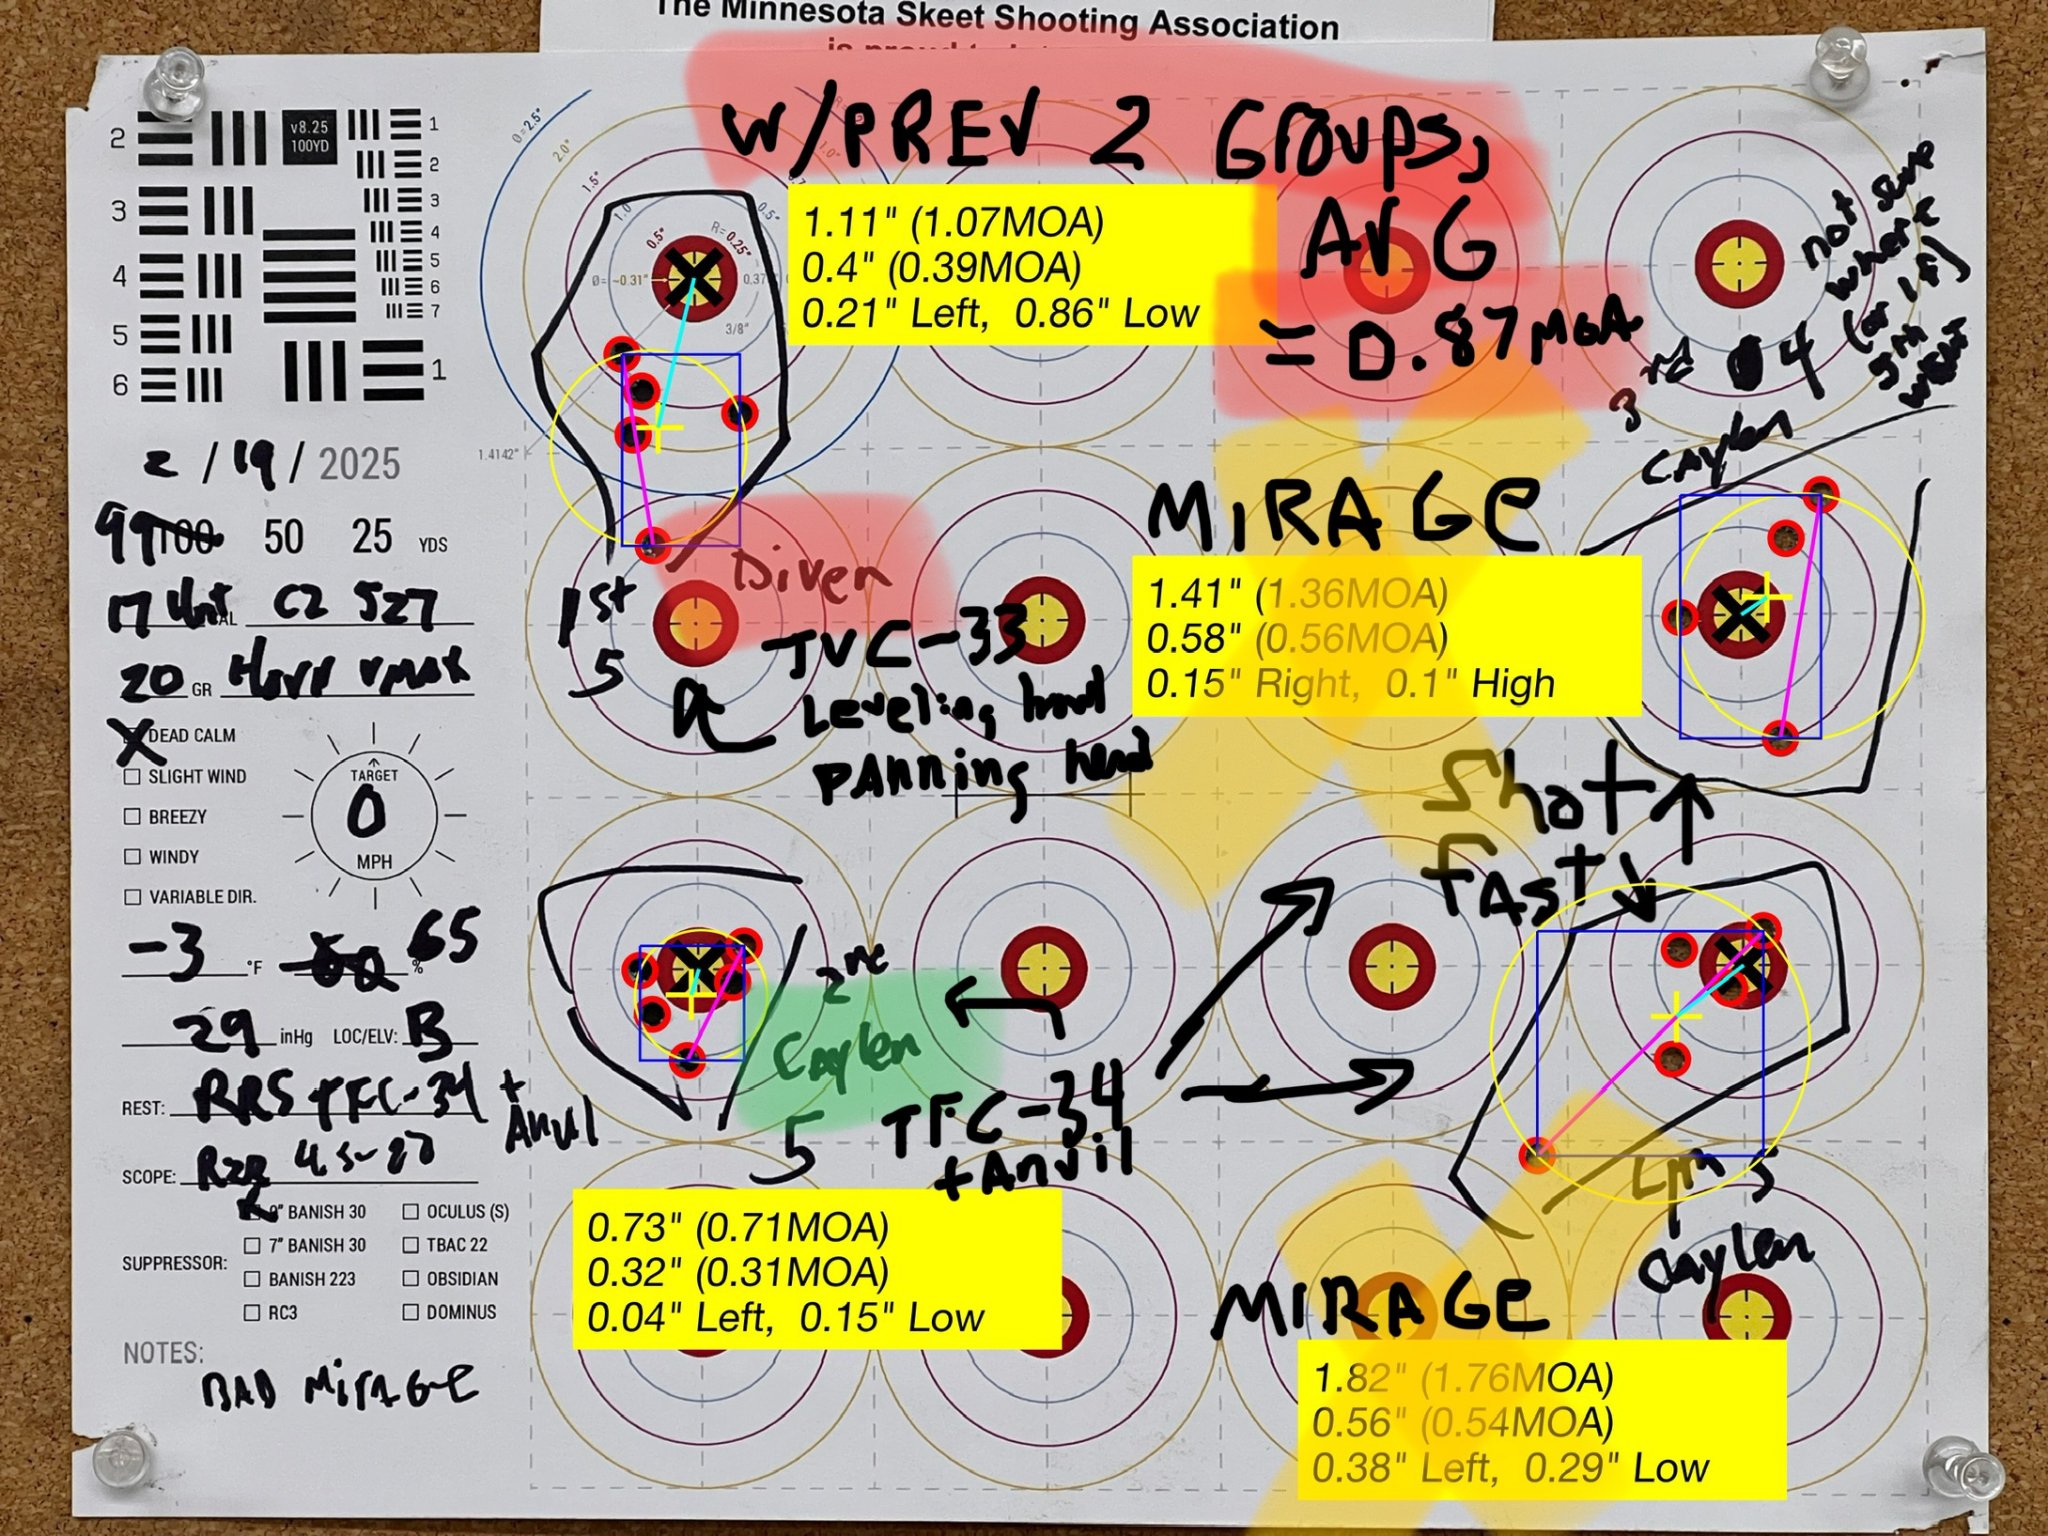 The Minnesota Skeet Shooting Association
W/PREV 2 Groups,
AVG
= 0.87 MOA
1.11" (1.07MOA)
0.4" (0.39MOA)
0.21" Left, 0.86" Low
v8.25
100YD
2
3
4
5
6
1
2
3
4
5
6
7
1
Ø=2.5"
2.0"
1.5"
1.0"
0.5"
R=0.25"
Ø=~0.31"
3/8"
0.5"
1.4142"
not sure
where
(or if)
5th
went
3rd 4
Caylen
2 / 19 / 2025
99 100 50 25 YDS
17 Hnt CZ 527
20 GR Horn VMAX
X DEAD CALM
SLIGHT WIND
BREEZY
WINDY
VARIABLE DIR.
TARGET
0
MPH
-3 °F 65 %
29 inHg LOC/ELV: B
REST: RRS TFC-34 + Anvil
SCOPE: Rzr 4.5-27
SUPPRESSOR:
9" BANISH 30
7" BANISH 30
BANISH 223
RC3
OCULUS (S)
TBAC 22
OBSIDIAN
DOMINUS
NOTES:
BAD MIRAGE
1st
5
Diven
TVC-33
Leveling
panning head
MIRAGE
1.41" (1.36MOA)
0.58" (0.56MOA)
0.15" Right, 0.1" High
Shot
FAST
2nd
Caylen
5
TFC-34
+Anvil
0.73" (0.71MOA)
0.32" (0.31MOA)
0.04" Left, 0.15" Low
5
Caylen
MIRAGE
1.82" (1.76MOA)
0.56" (0.54MOA)
0.38" Left, 0.29" Low